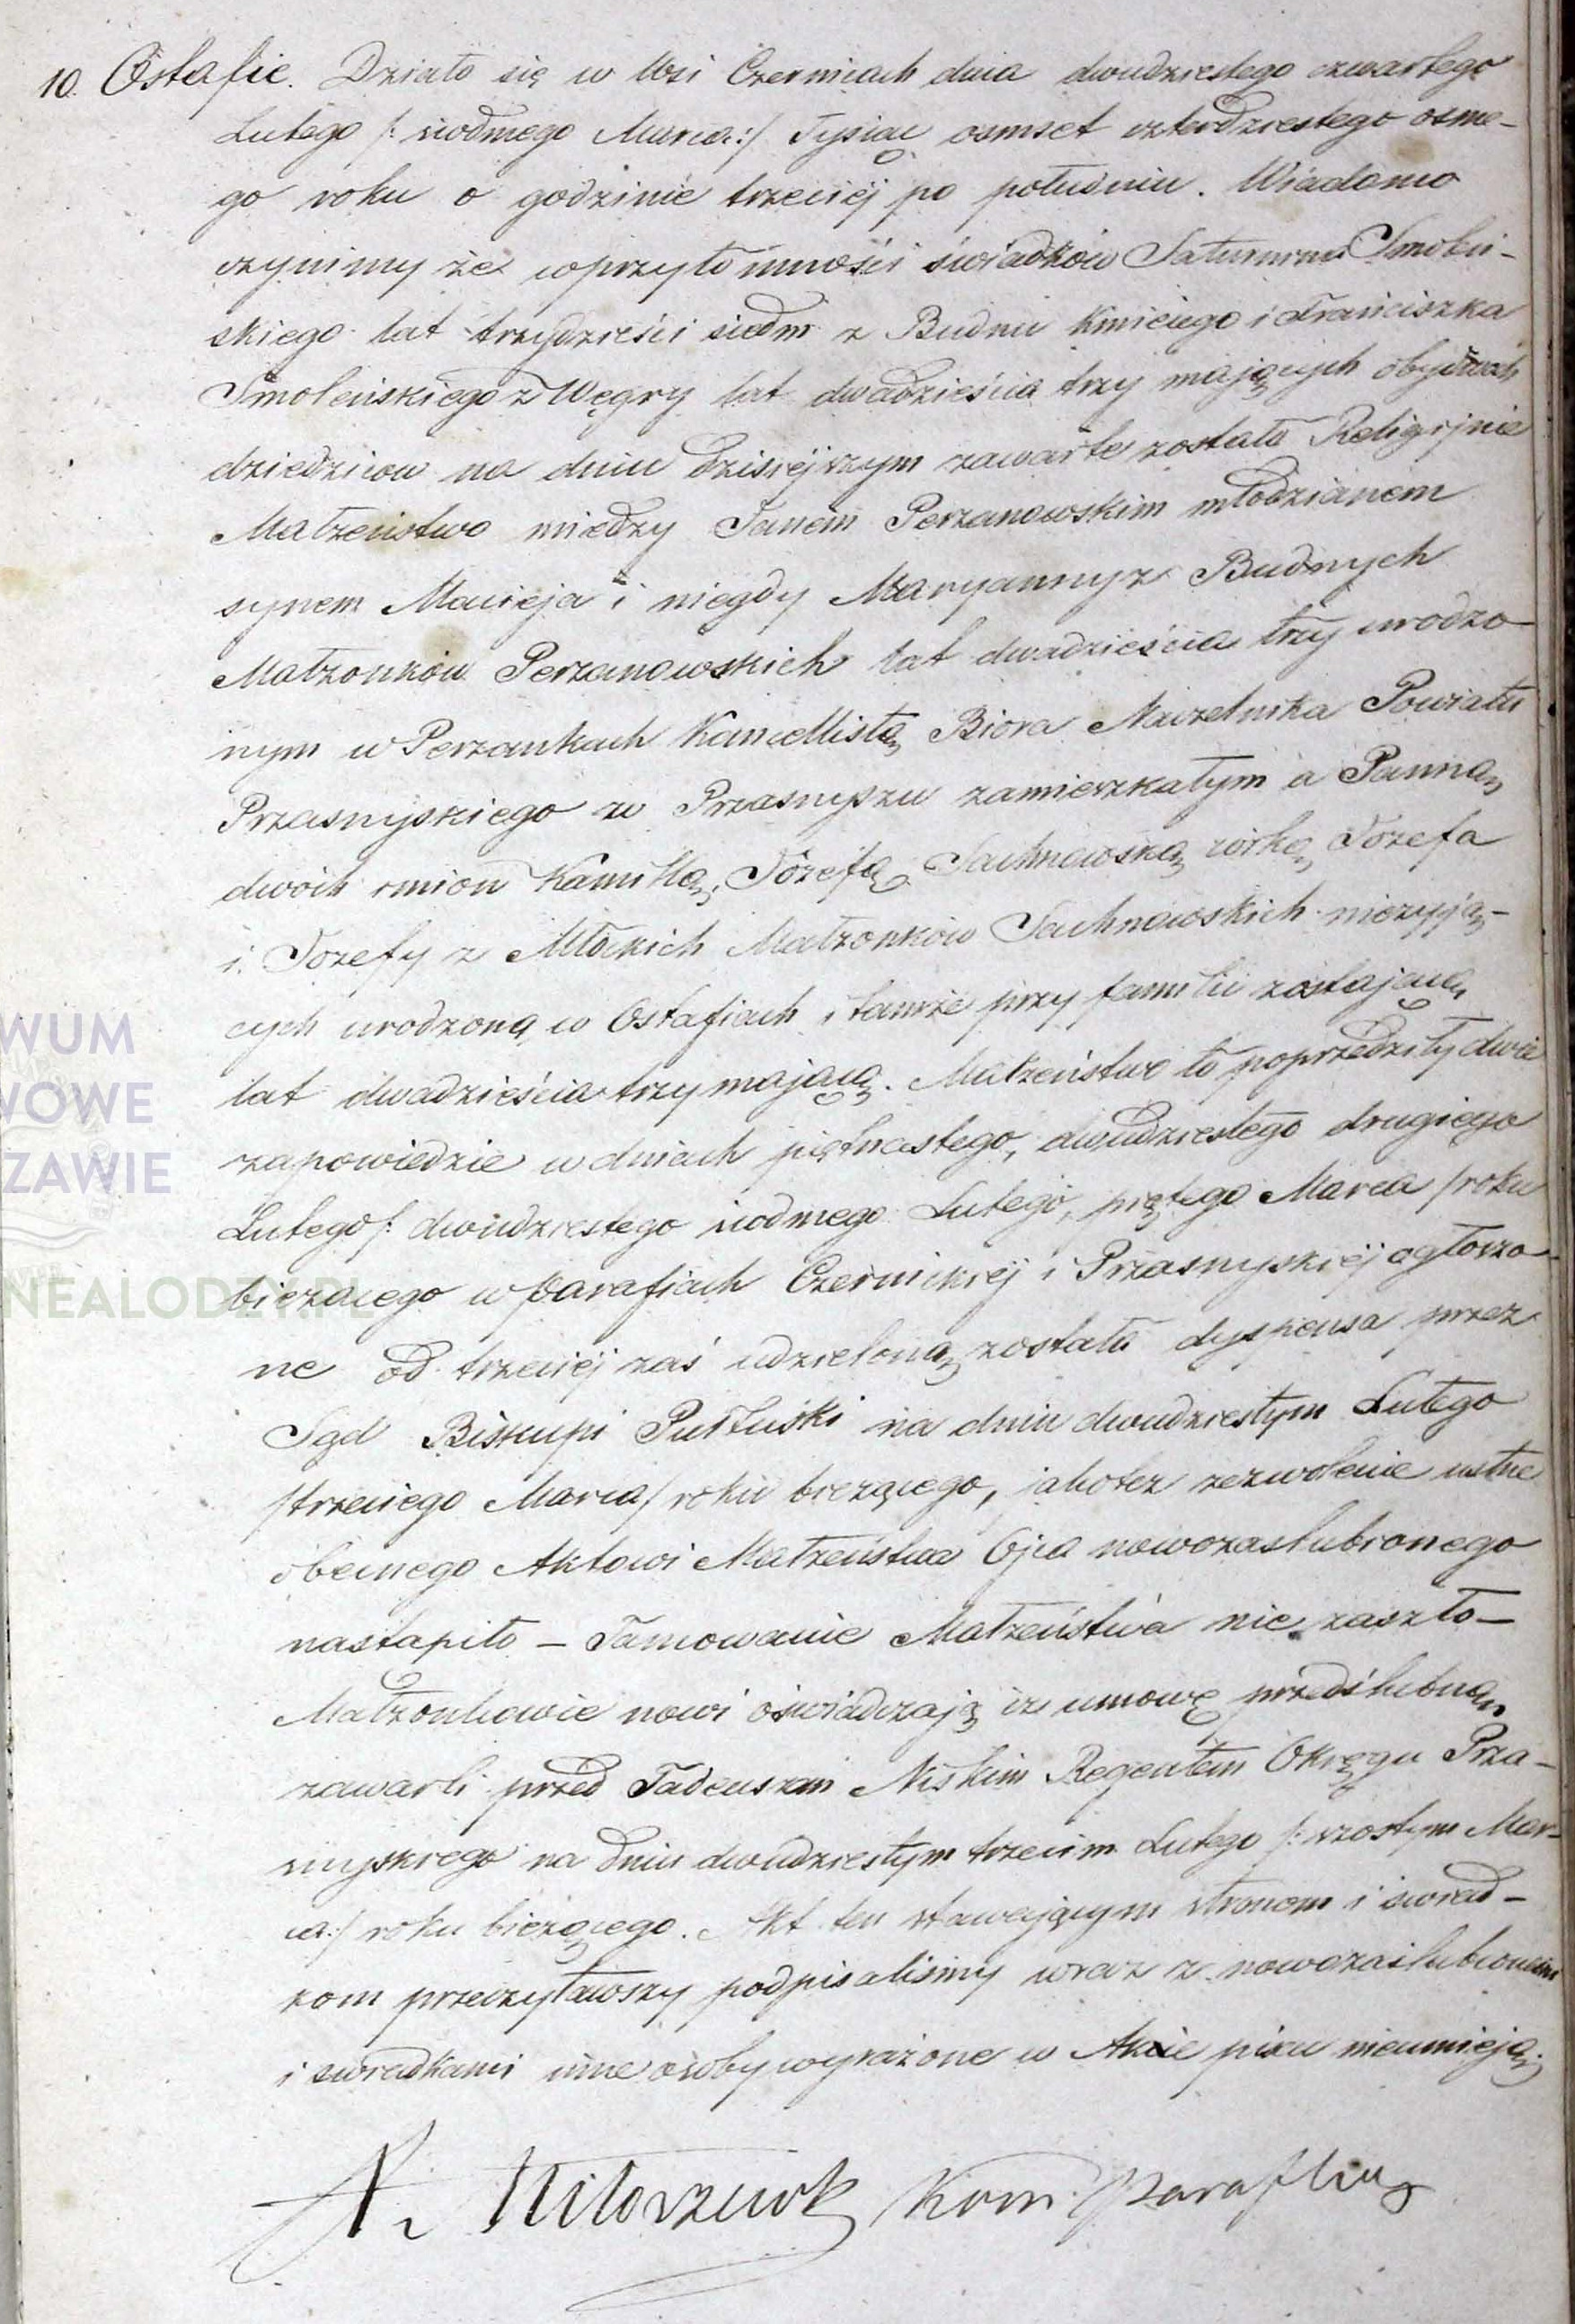 10. Ostafie. Działo się w Wsi Czernicach dnia dwudziestego czwartego
Lutego /: siodmego Marca :/ Tysiąc osmset czterdziestego osme-
go roku o godzinie trzeciéj po południu. Wiadomo
czynimy że w przytomności świadków Saturnina Smoleń-
skiego lat trzydzieści siedm z Budnu Kmiciego i Franciszka
Smoleńskiego z Węgry lat dwadzieścia trzy mających obydwoch
dziedziców na dniu dzisiejszym zawarte zostało Religijnie
Małżeństwo między Janem Perzanowskim młodzianem
synem Macieja i niegdy Maryanny z Budnych
Małżonków Perzanowskich lat dwadzieścia trzy urodzo-
nym w Perzankach Kancellistą Biora Naczelnika Powiatu
Przasnyskiego w Przasnyszu zamieszkałym a Panną
dwoih imion Kamillą, Józefą Suchnowską corką Jozefa
i Jozefy z Młockich Małżonków Suchnowskich nieżyją-
cych urodzoną w Ostafiach i tamże przy familii zostającą
lat dwadzieścia trzy mającą. Małżeństwo to poprzedziły dwie
zapowiedzie w dniach piętnastego, dwudziestego drugiego
Lutego /: dwudziestego siodmego Lutego, piątego Marca / roku
bieżącego w Parafiach Czernickiéj i Przasnyskiéj ogłoszo-
ne od trzeciéj zaś udzieloną została dyspensa przez
Sąd Biskupi Pułtuski na dniu dwudziestym Lutego
/ trzeciego Marca / roku bieżącego, jakoteż zezwolenie ustne
obecnego Aktowi Małżeństwa Ojca nowozaslubionego
nastąpiło – Tamowanie Małżeństwa nie zaszło –
Małżonkowie nowi oświadczają iż umowę przedślubną
zawarli przed Tadeuszem Niskim Regentem Okręgu Prza-
snyskiego na dniu dwudziestym trzecim Lutego /: szostym Mar-
ca :/ roku bieżącego. Akt ten stawającym stronom i swiad-
kom przeczytawszy podpisaliśmy wraz z nowozaślubionemi
i swiadkami inne osoby wyrażone w Akcie pisać nieumieją.
Kom. Parafii
WUM
WOWE
ZAWIE
NEALODZY.PL